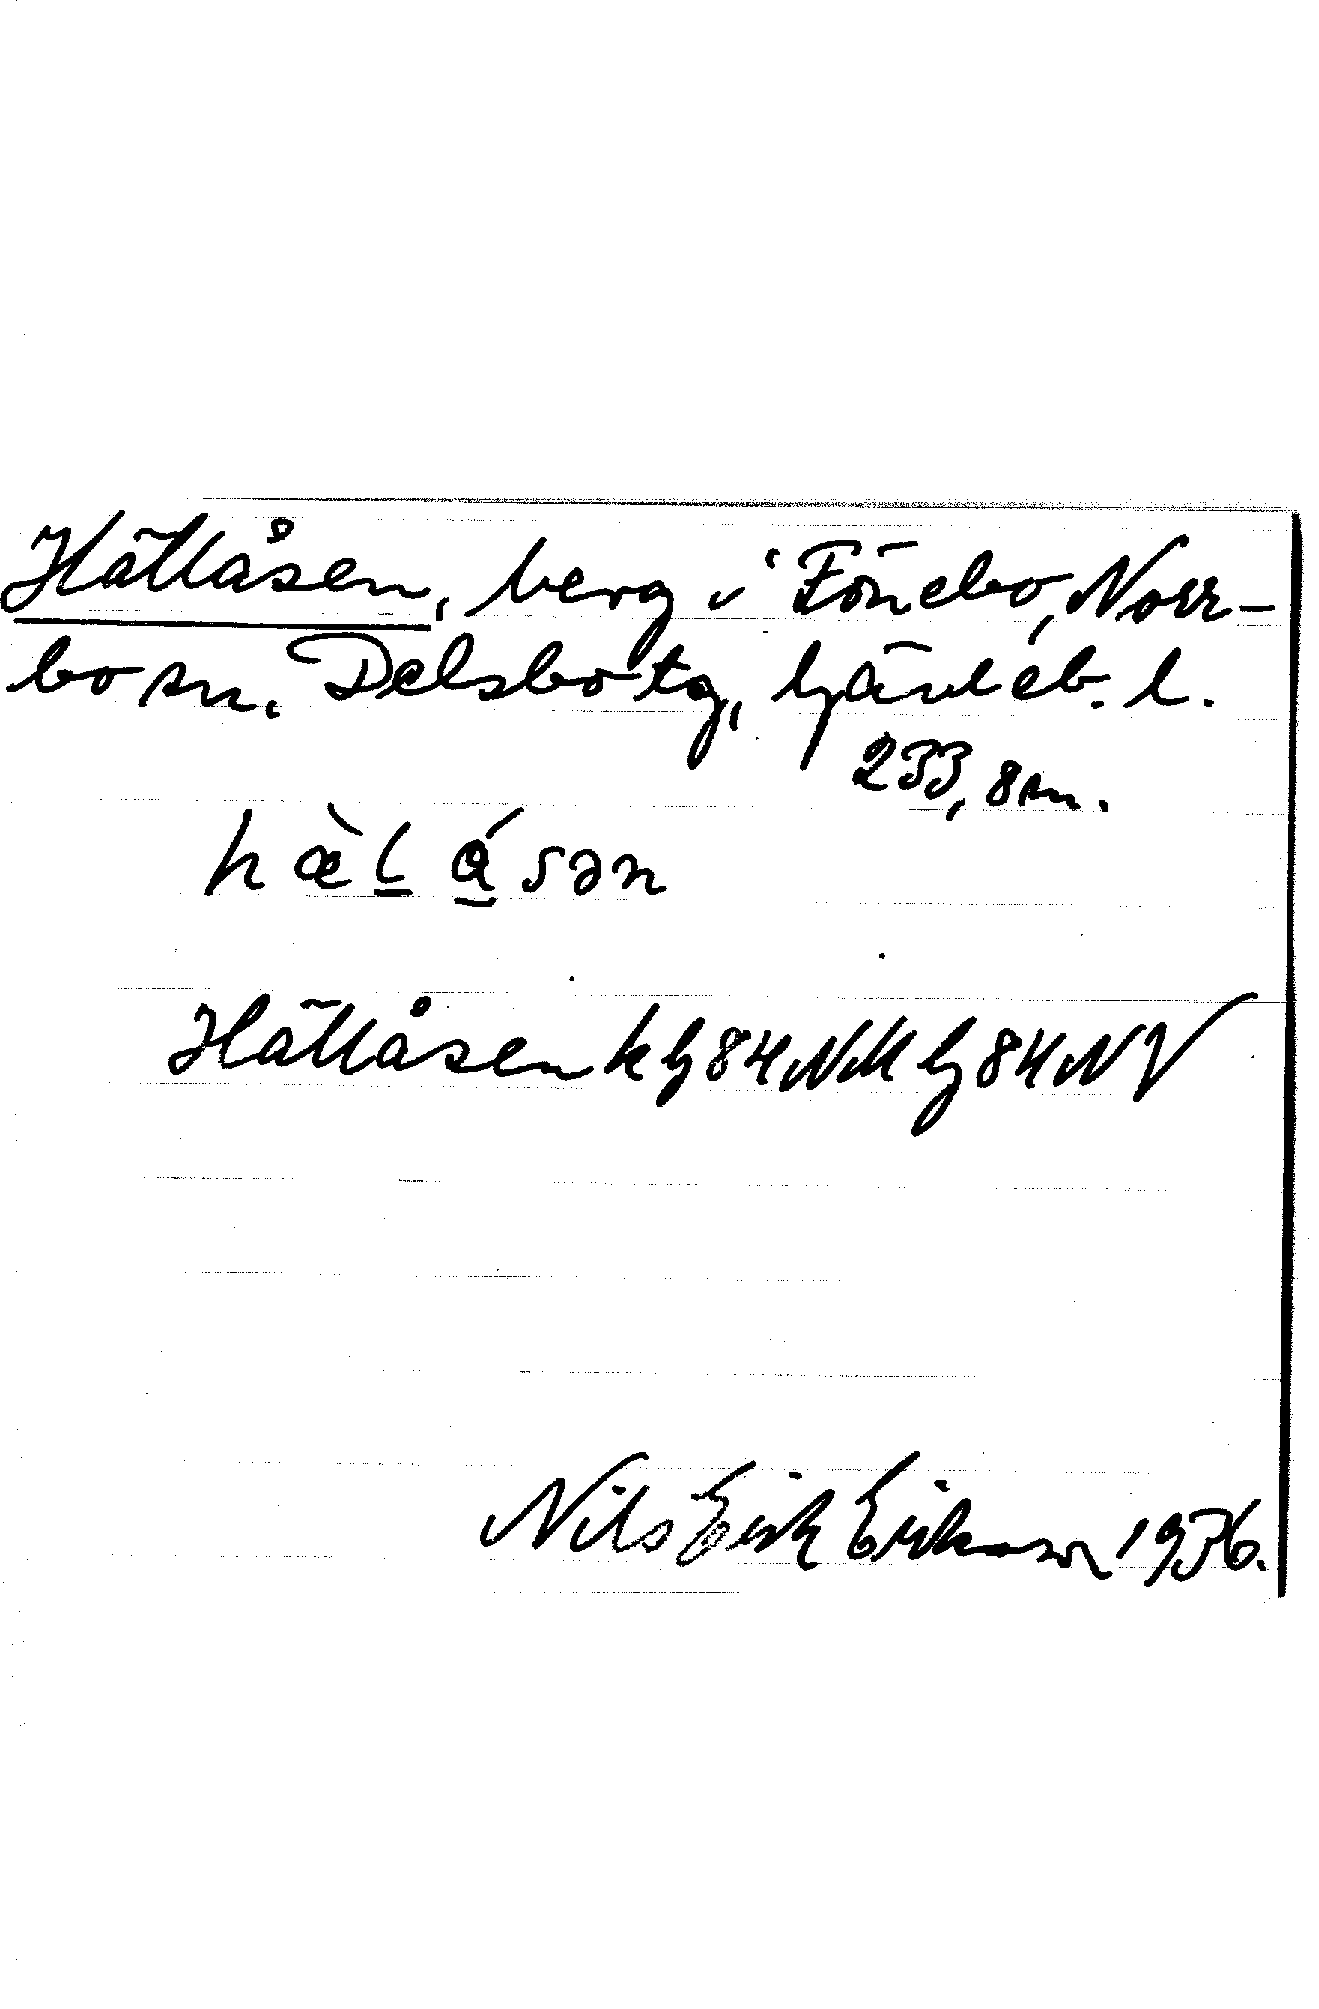 Hällåsen, berg i Fönebo, Norr-
bo sn. Delsbo tg, Gävleb. l.
233,8 m.
hæ̀l̲ǻ̲sən
Hällåsen k G84 NM G84 NV
Nils Erik Erikson 1936.